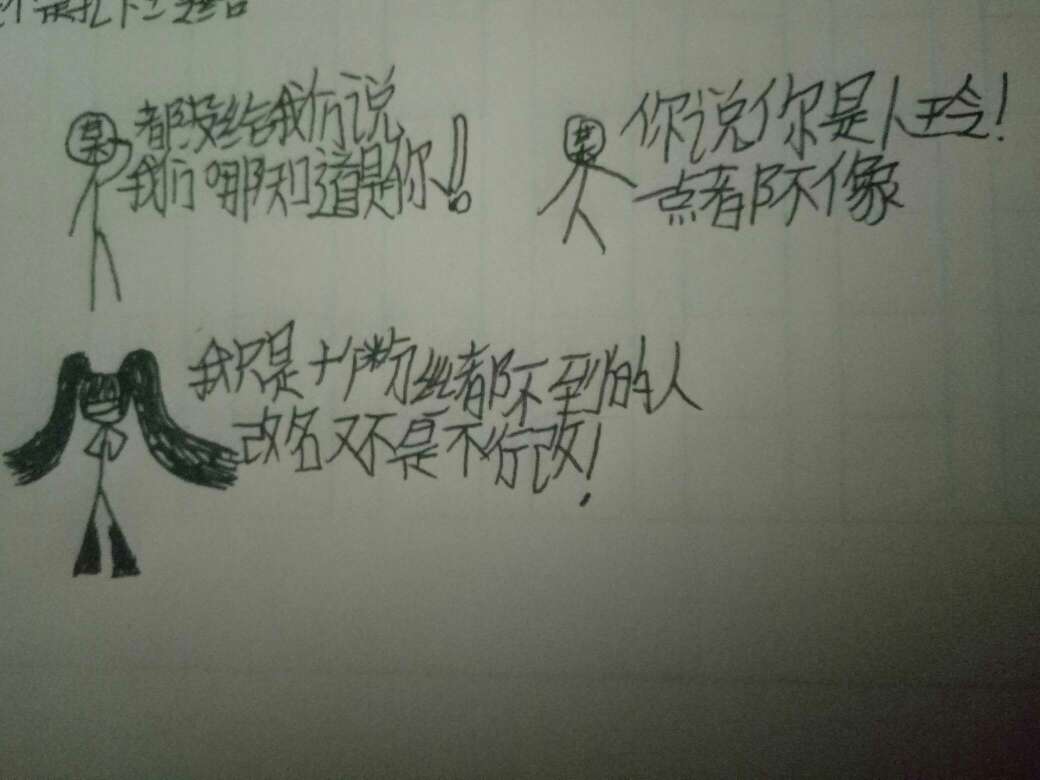 某
都没给我们说
我们哪知道是你!!
某
你说你是人玲!
一点都不像
我只是十个粉丝都不到的人
改名又不是不行改!